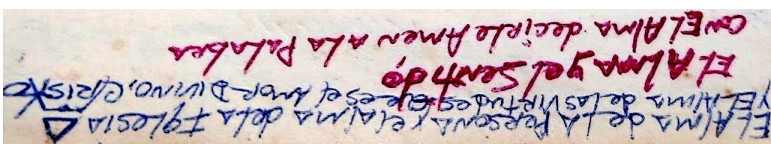 EL Alma de LA Persona y el alma de la Iglesia
Y EL Alma de las Virtudes es el Amor-Divino, Cristo
El Alma y el Sentido,
con El Alma decirle Amen a La Palabra